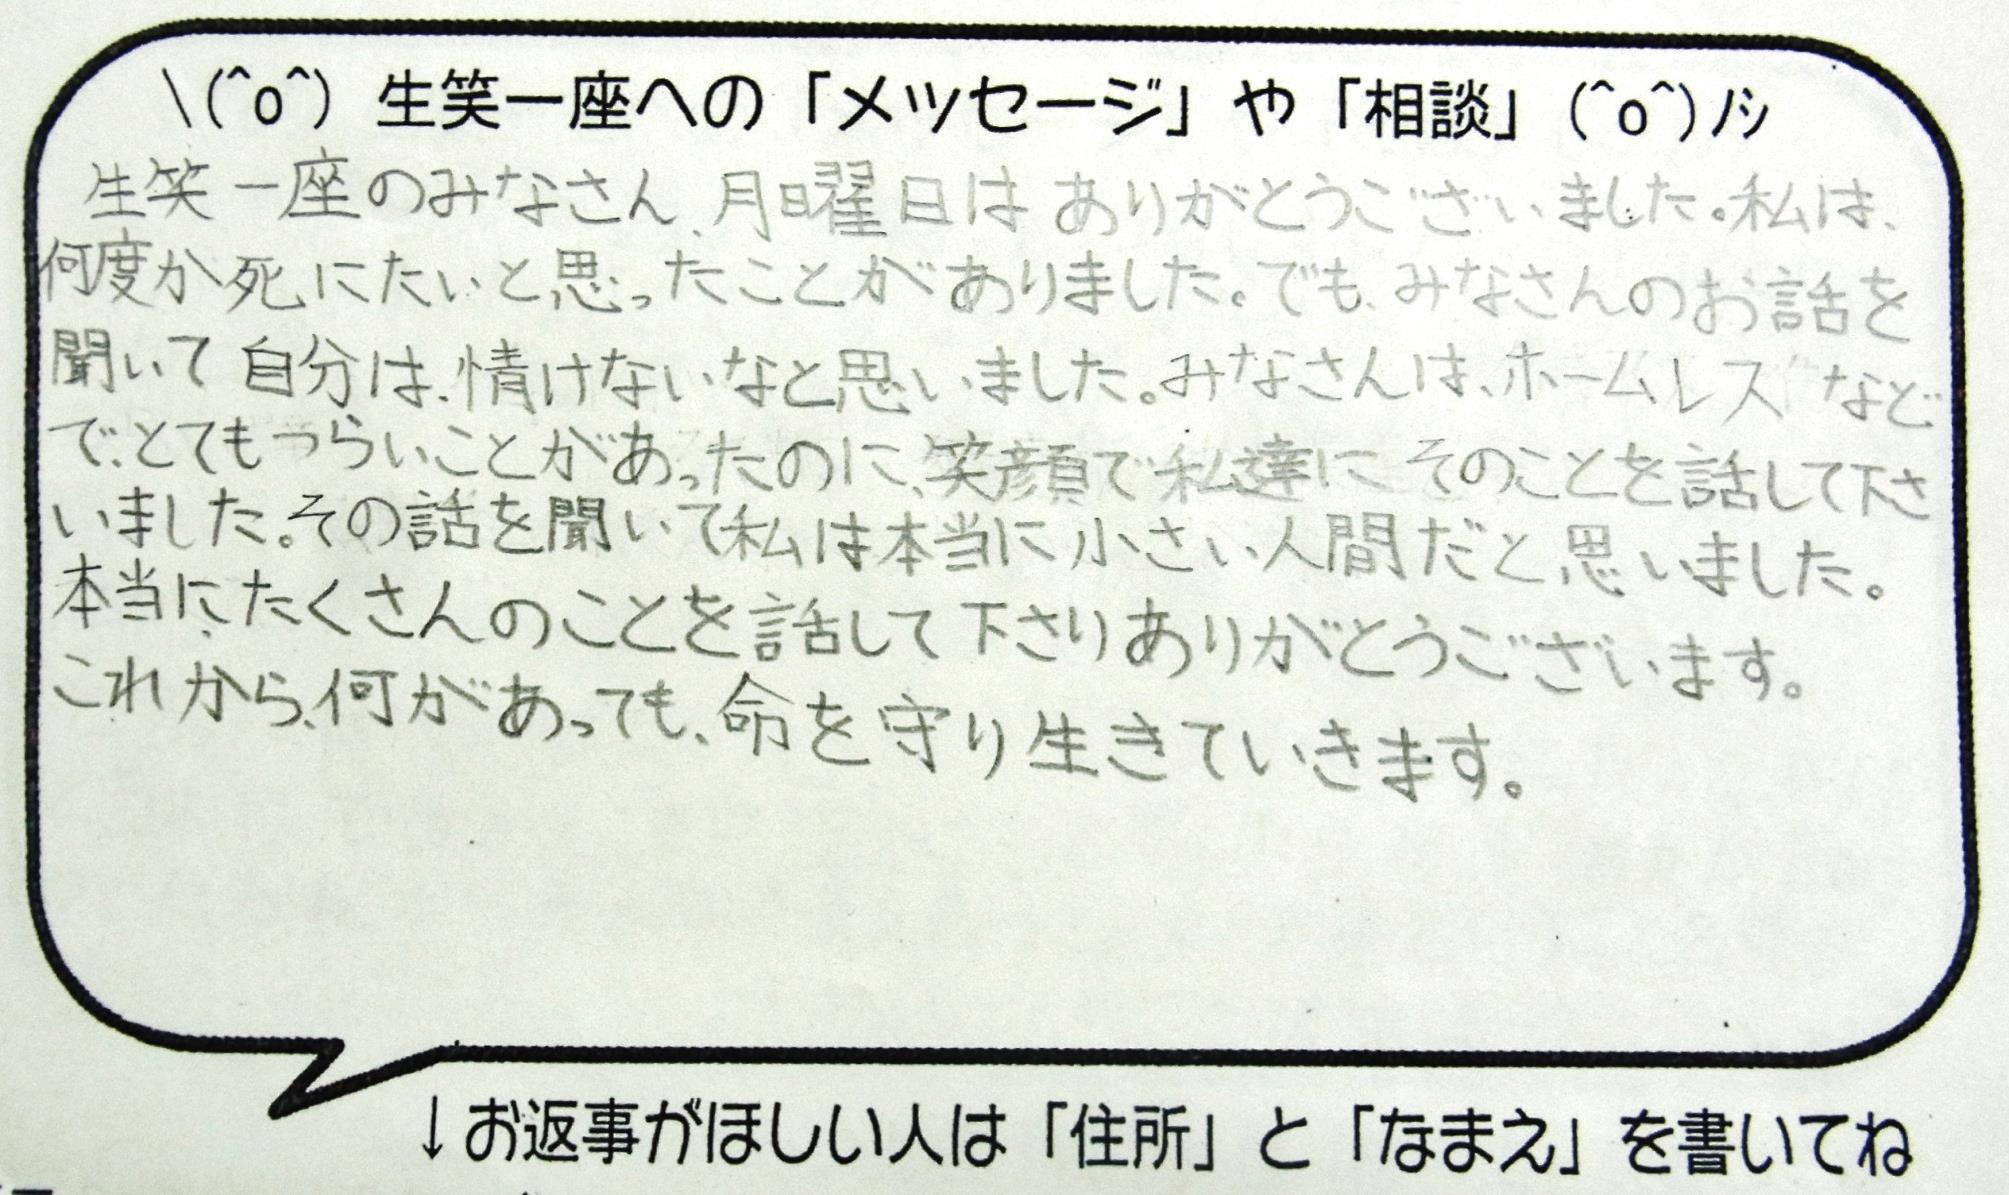 \(^o^) 生笑一座への「メッセージ」や「相談」(^o^)ﾉｼ
生笑一座のみなさん、月曜日はありがとうございました。私は、
何度か死にたいと思ったことがありました。でも、みなさんのお話を
聞いて自分は、情けないなと思いました。みなさんは、ホームレスなど
で、とてもつらいことがあったのに、笑顔で私達にそのことを話して下さ
いました。その話を聞いて私は本当に小さい人間だと思いました。
本当に、たくさんのことを話して下さりありがとうございます。
これから、何があっても、命を守り生きていきます。
↓お返事がほしい人は「住所」と「なまえ」を書いてね